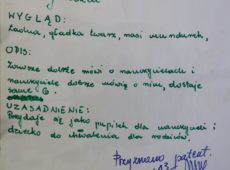 WYGLĄD:
Ładna, gładka twarz, nosi mundurek,
OPIS:
Zawsze dobrze mówi o nauczycielach i
nauczyciele dobrze mówią o nim, dostaje
same 6.
UZASADNIENIE:
Przydaje się jako pupilek dla nauczycieli i
dziecko do chwalenia dla rodziców.
Przyznano patent.